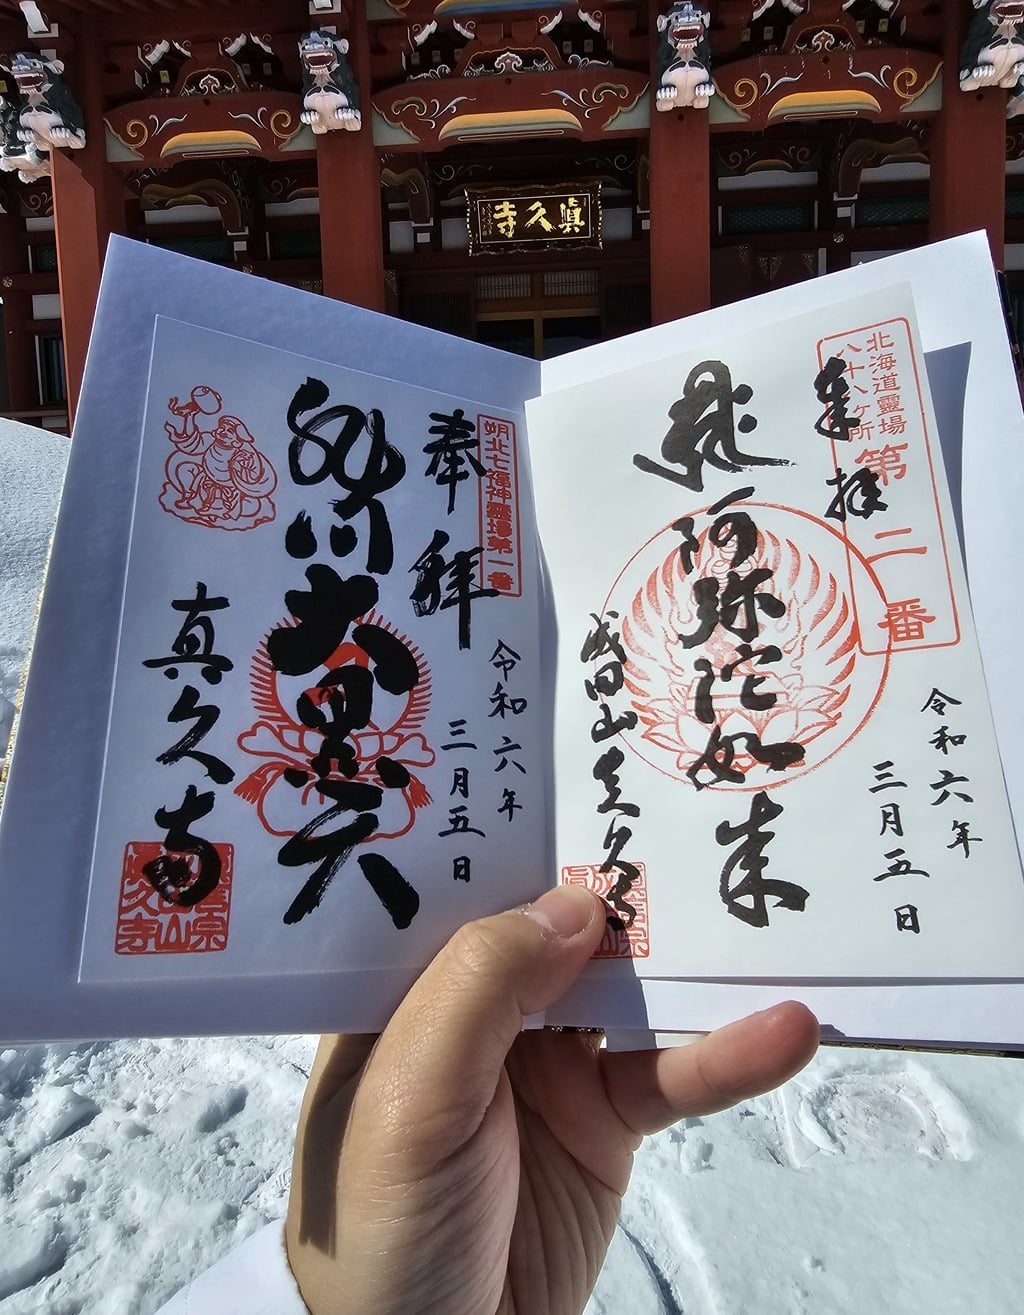 眞久寺
北海道靈場
八十八ヶ所
第二番
奉拝
令和六年
三月五日
阿弥陀如来
成田山真久寺
朔北七福神靈場第一番
奉拝
令和六年
三月五日
大黒天
真久寺
眞言宗
成田山
眞久寺